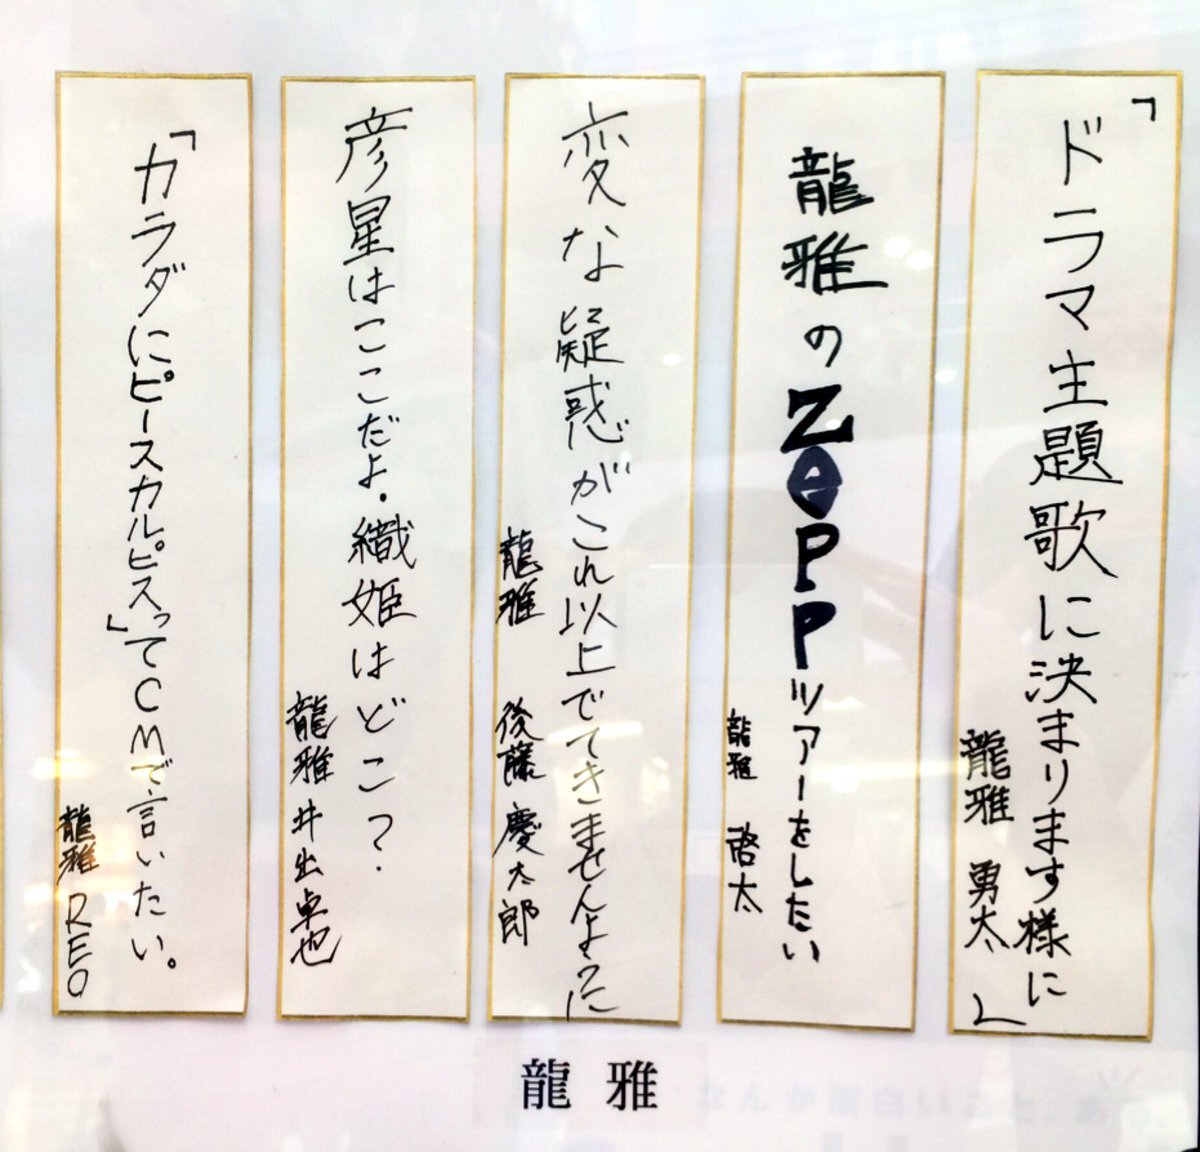 「ドラマ主題歌に決まります様に
龍雅 勇太」
龍雅のZeppツアーをしたい
龍雅 啓太
変な疑惑がこれ以上でてきませんように
龍雅 後藤慶太郎
彦星はここだよ。織姫はどこ？
龍雅 井出卓也
「カラダにピースカルピス」ってCMで言いたい。
龍雅 REO
龍雅